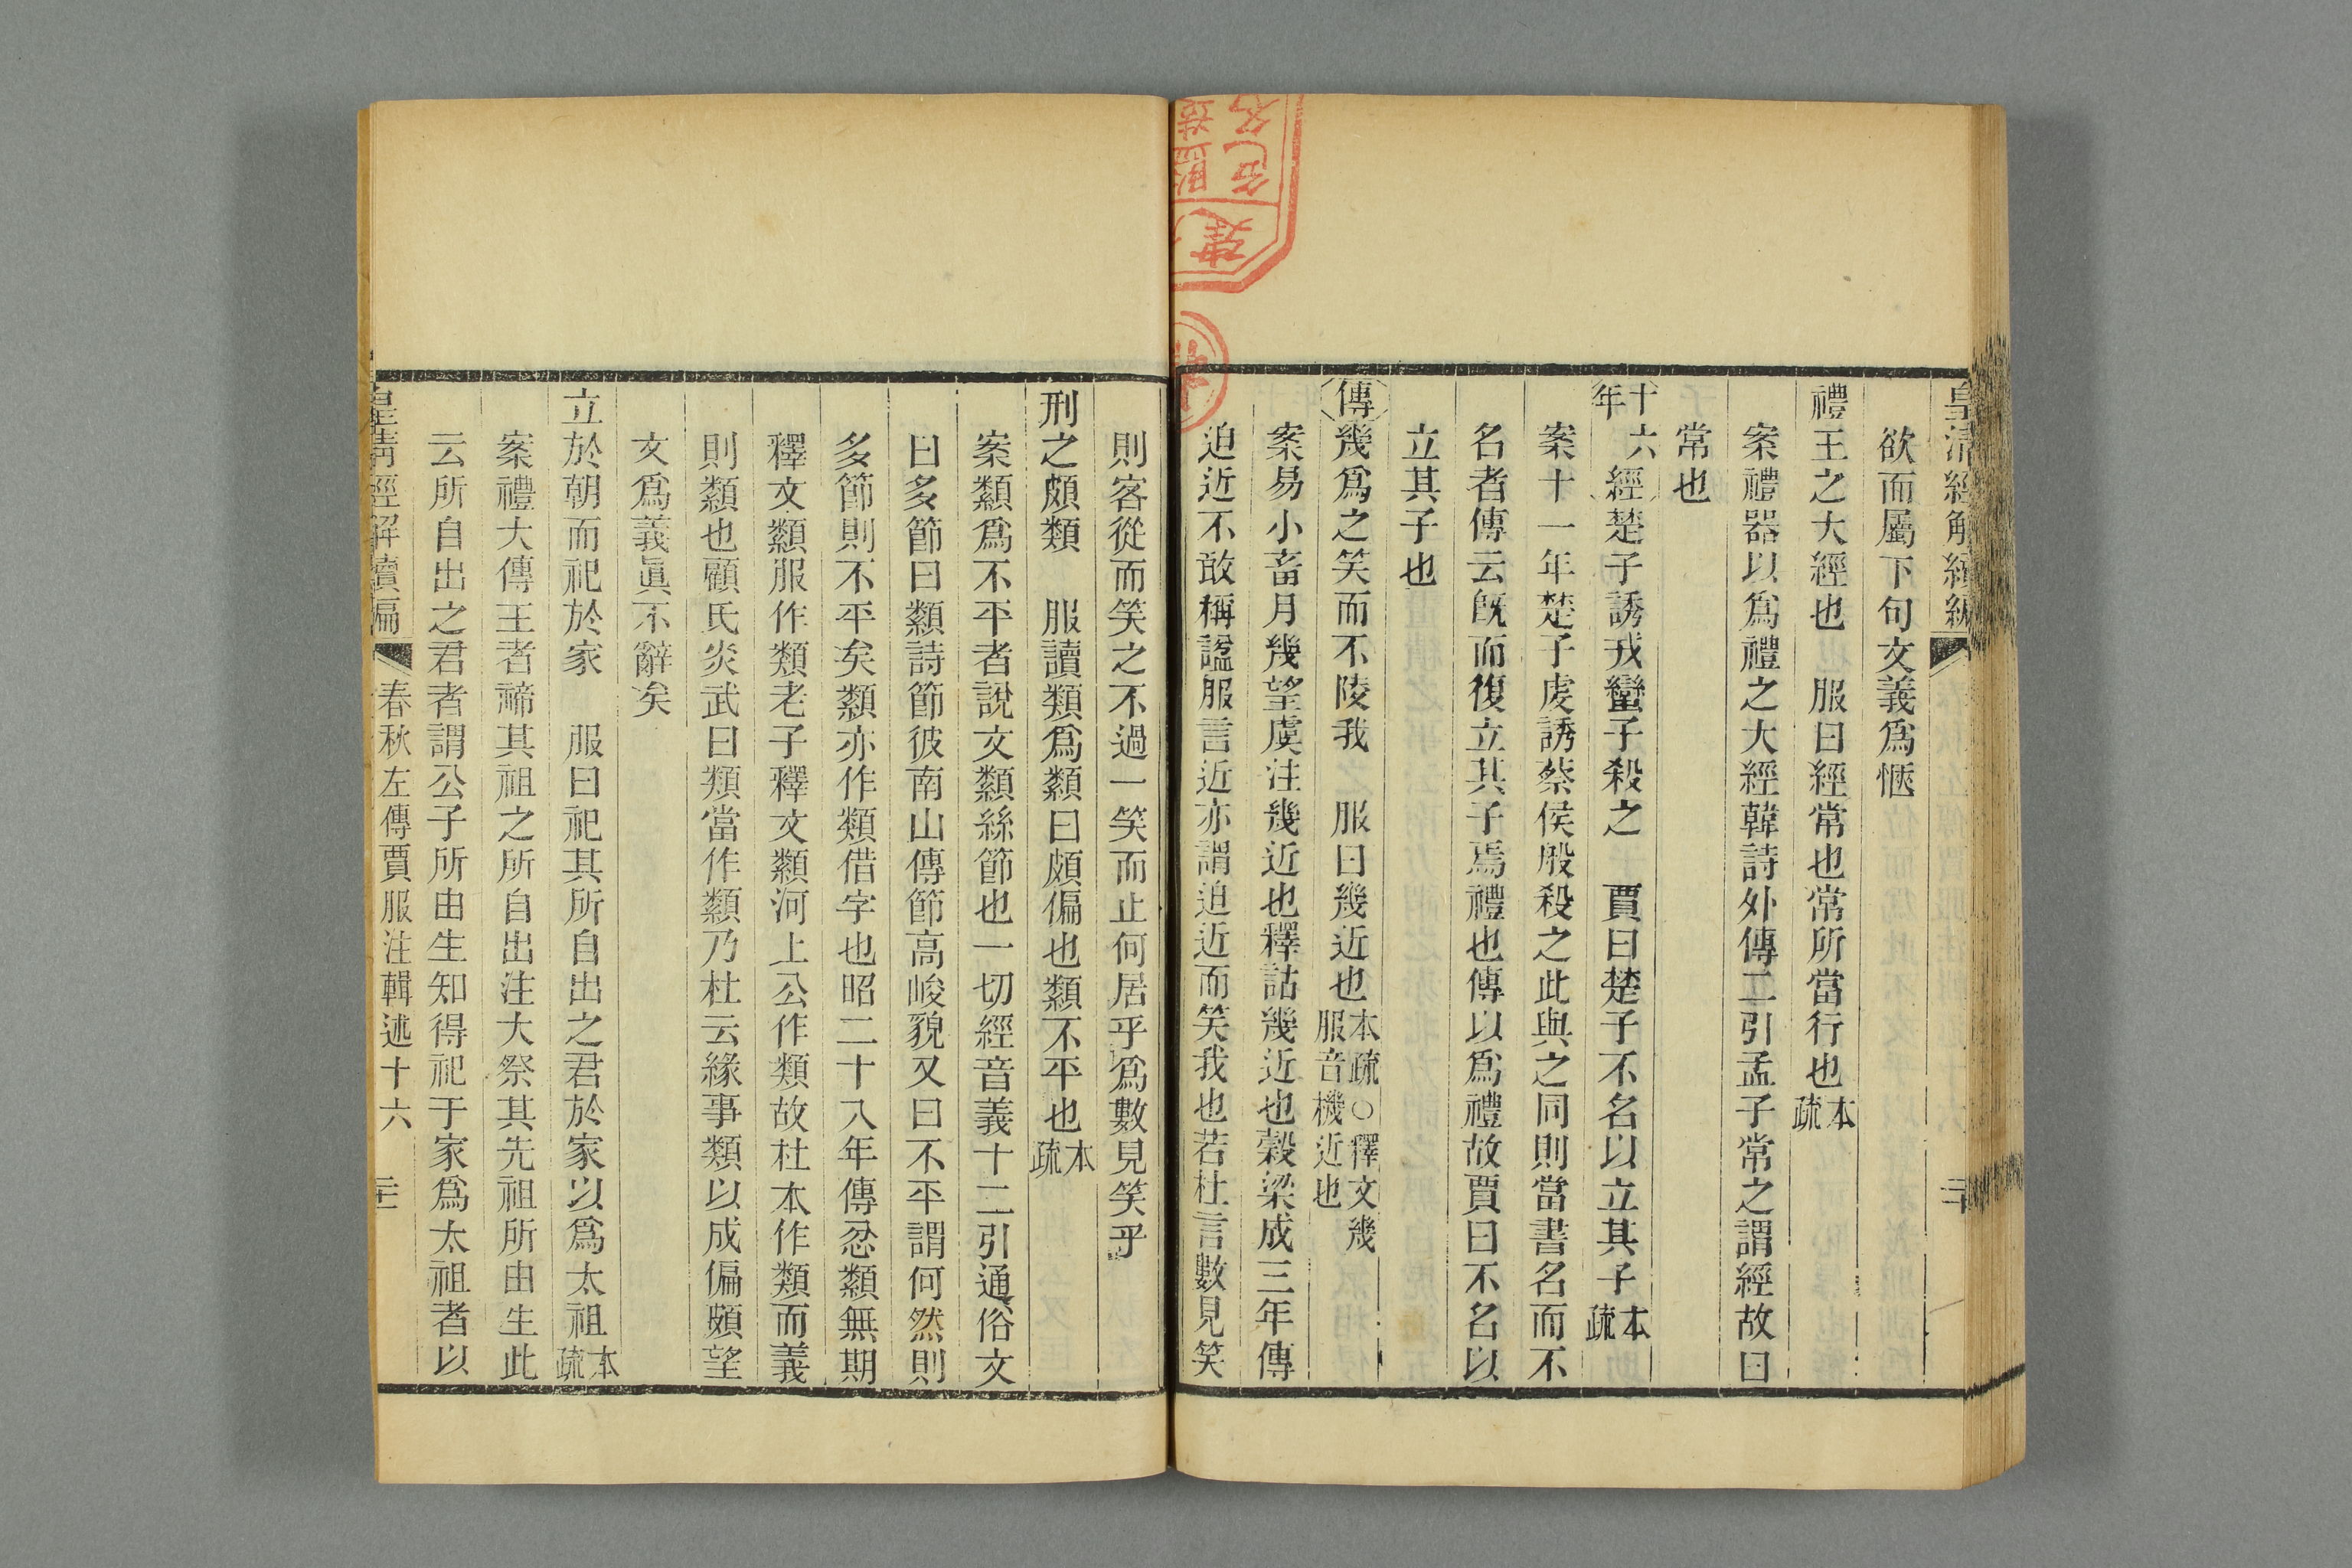 皇清經解續編
欲而屬下句文義爲愜
禮王之大經也 服曰經常也常所當行也本疏
案禮器以爲禮之大經韓詩外傳二引孟子常之謂經故曰
常也
十六年經楚子誘戎蠻子殺之 賈曰楚子不名以立其子本疏
案十一年楚子虔誘蔡侯般殺之此與之同則當書名而不
名者傳云旣而復立其子焉禮也傳以爲禮故賈曰不名以
立其子也
傳幾爲之笑而不陵我 服曰幾近也本疏○釋文幾服音機近也
案易小畜月幾望虞注幾近也釋詁幾近也穀梁成三年傳
迫近不敢稱諡服言近亦謂迫近而笑我也若杜言數見笑
則客從而笑之不過一笑而止何居乎爲數見笑乎
刑之頗類 服讀類爲纇曰頗偏也纇不平也本疏
案纇爲不平者說文纇絲節也一切經音義十二引通俗文
曰多節曰纇詩節彼南山傳節高峻貌又曰不平謂何然則
多節則不平矣纇亦作類借字也昭二十八年傳忿纇無期
釋文纇服作類老子釋文纇河上公作類故杜本作類而義
則纇也顧氏炎武曰類當作纇乃杜云緣事類以成偏頗望
文爲義眞不辭矣
立於朝而祀於家 服曰祀其所自出之君於家以爲太祖本疏
案禮大傳王者禘其祖之所自出注大祭其先祖所由生此
云所自出之君者謂公子所由生知得祀于家爲太祖者以
皇清經解續編 春秋左傳賈服注輯述十六